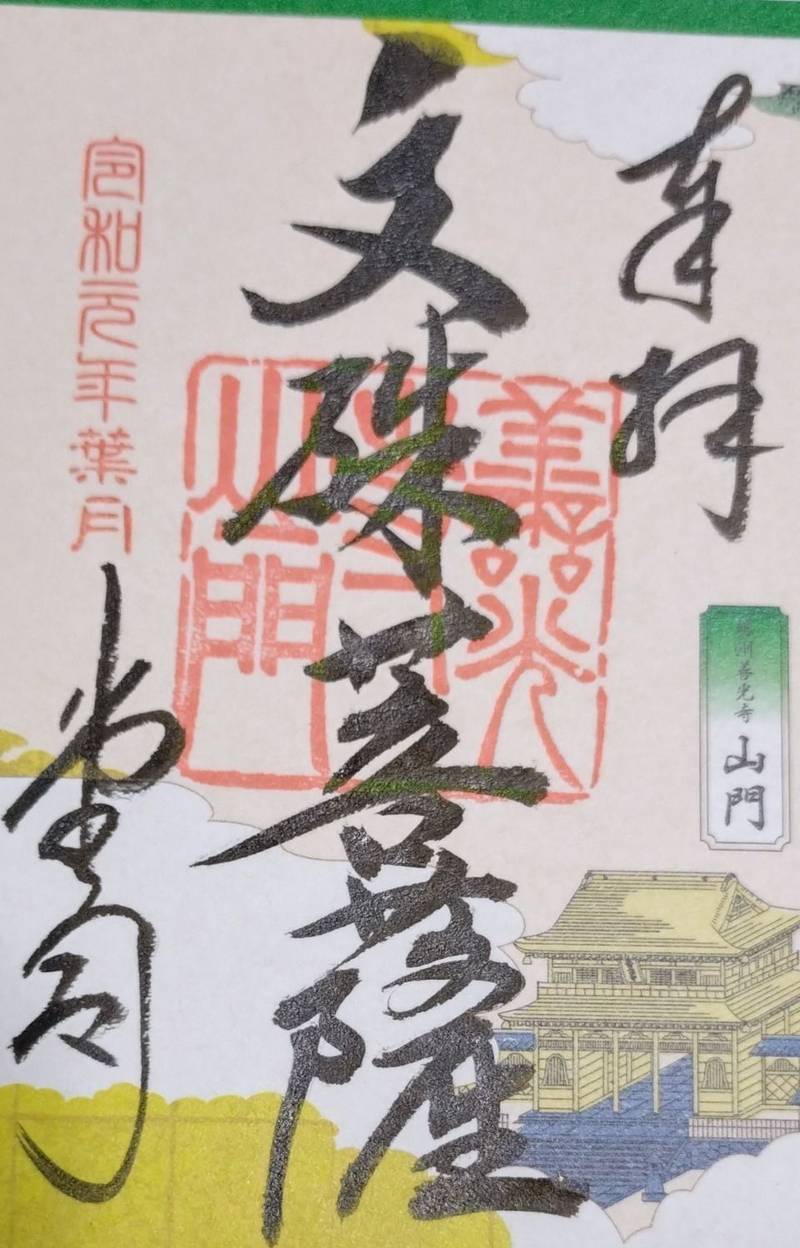 奉拝
信州善光寺
山門
文殊菩薩
善光寺
山門
令和元年葉月
堂司